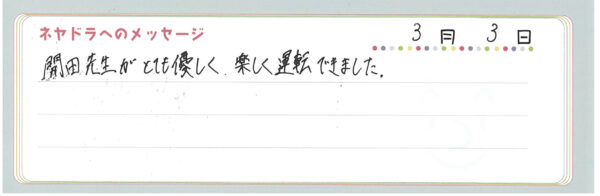 ネヤドラへのメッセージ
3月 3日
関田先生がとても優しく、楽しく運転できました。